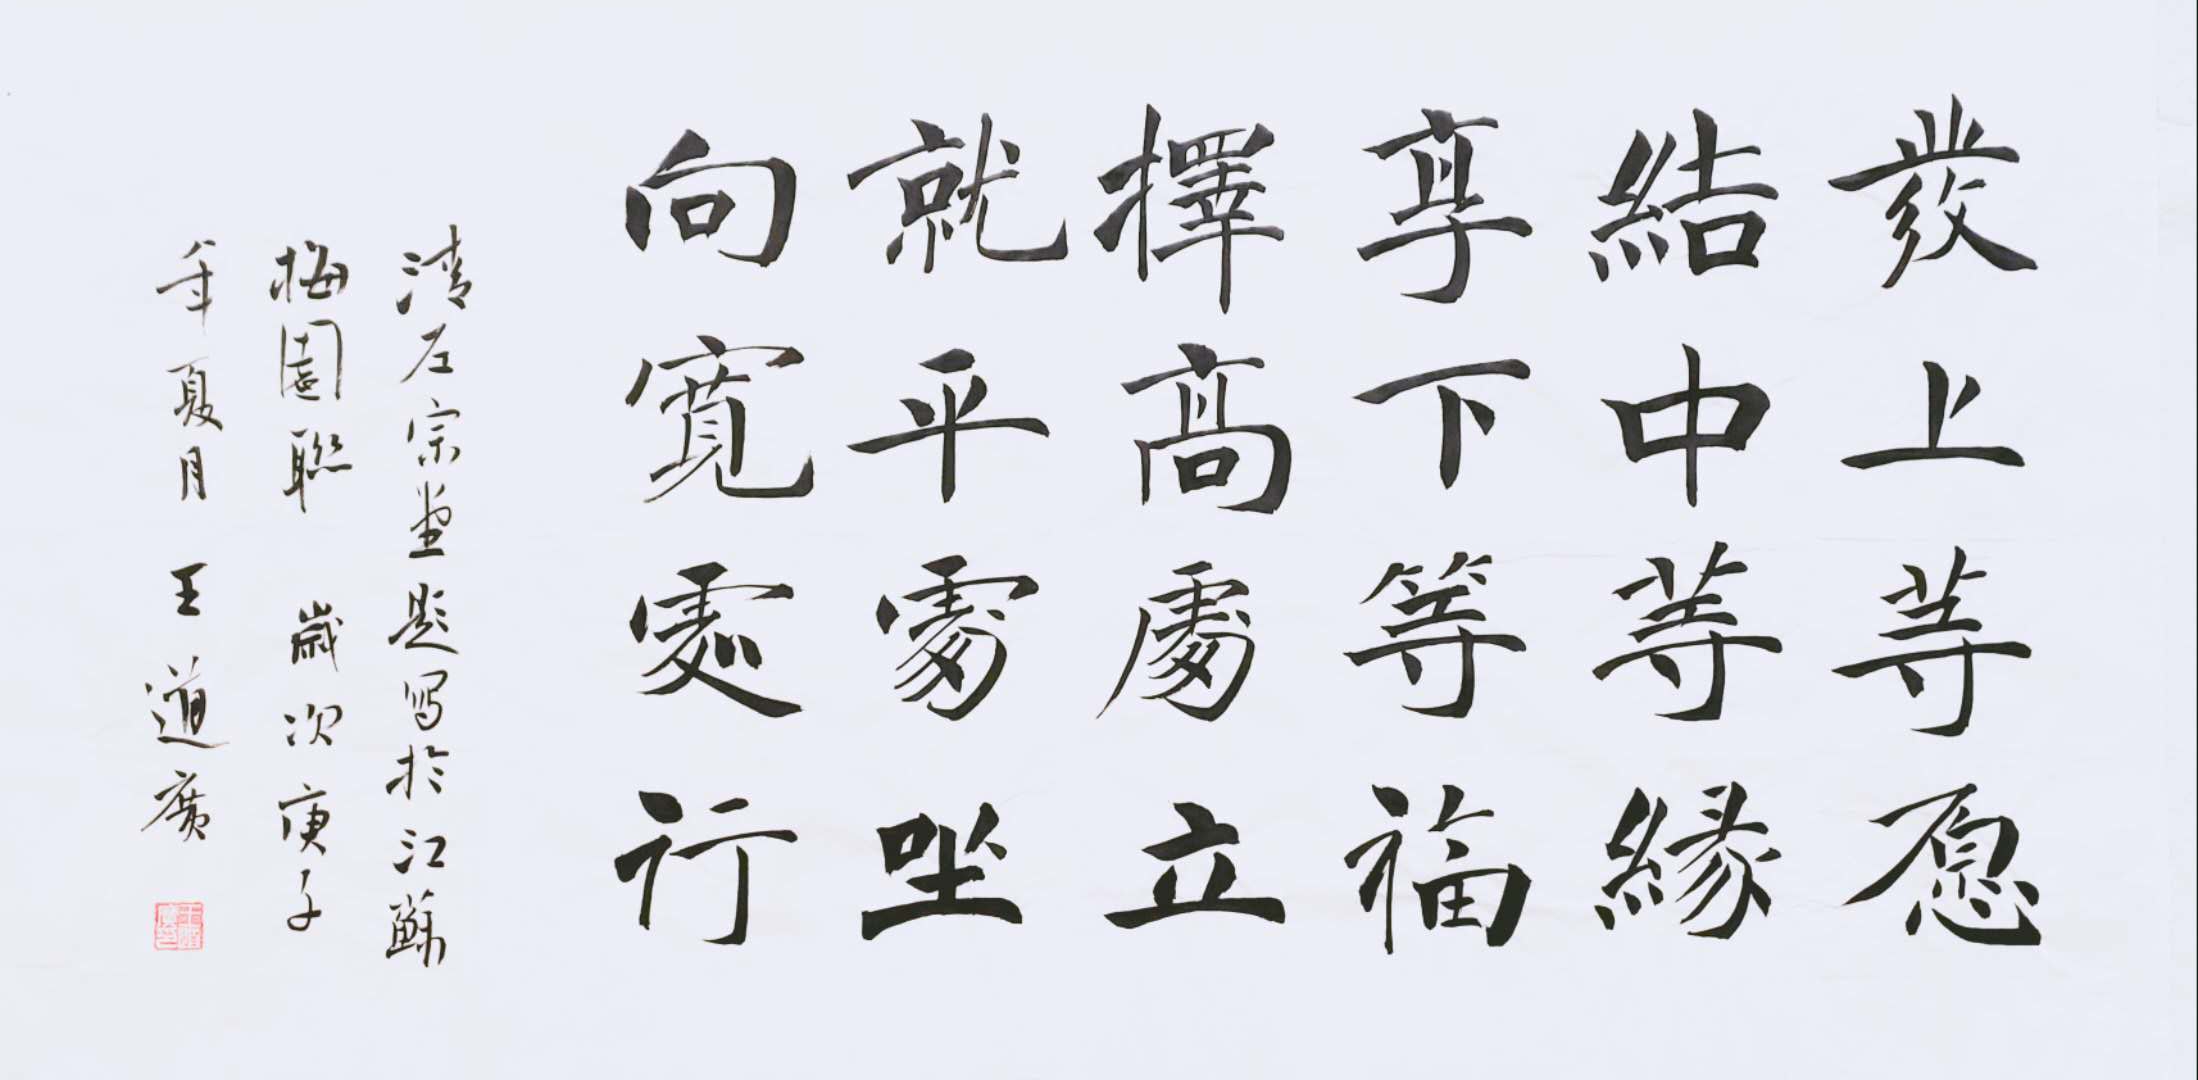 發上等愿
結中等緣
享下等福
擇高處立
就平處坐
向寬處行
清左宗堂題寫於江蘇
梅園聯 歲次庚子
年夏月 王道廣